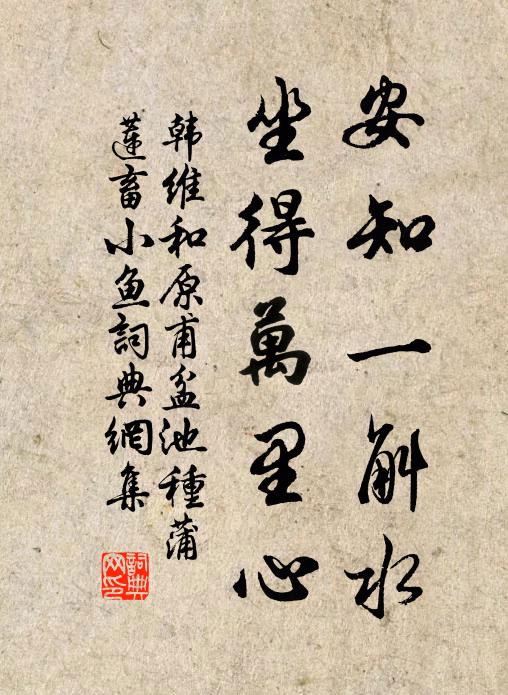 安知一斛水
坐得萬里心
韩維和原甫盆池種蒲
蓮畜小魚詞典網集
詞典
网印